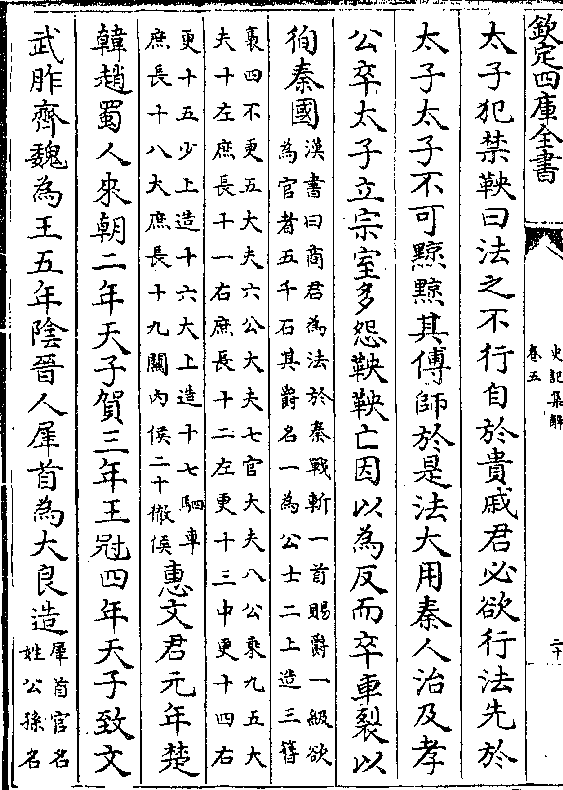 欽定四庫全書
史記集解
卷五
二十
太子犯禁鞅曰法之不行自於貴戚君必欲行法先於
太子太子不可黥黥其傅師於是法大用秦人治及孝
公卒太子立宗室多怨鞅鞅亡因以為反而卒車裂以
徇秦國漢書曰商君為法於秦戰斬一首賜爵一級欲
為官者五千石其爵名一為公士二上造三簪
褭四不更五大夫六公大夫七官大夫八公乘九五大
夫十左庶長十一右庶長十二左更十三中更十四右
更十五少上造十六大上造十七駟車
庶長十八大庶長十九關內侯二十徹侯惠文君元年楚
韓趙蜀人來朝二年天子賀三年王冠四年天子致文
武胙齊魏為王五年陰晉人犀首為大良造犀首官名
姓公孫名